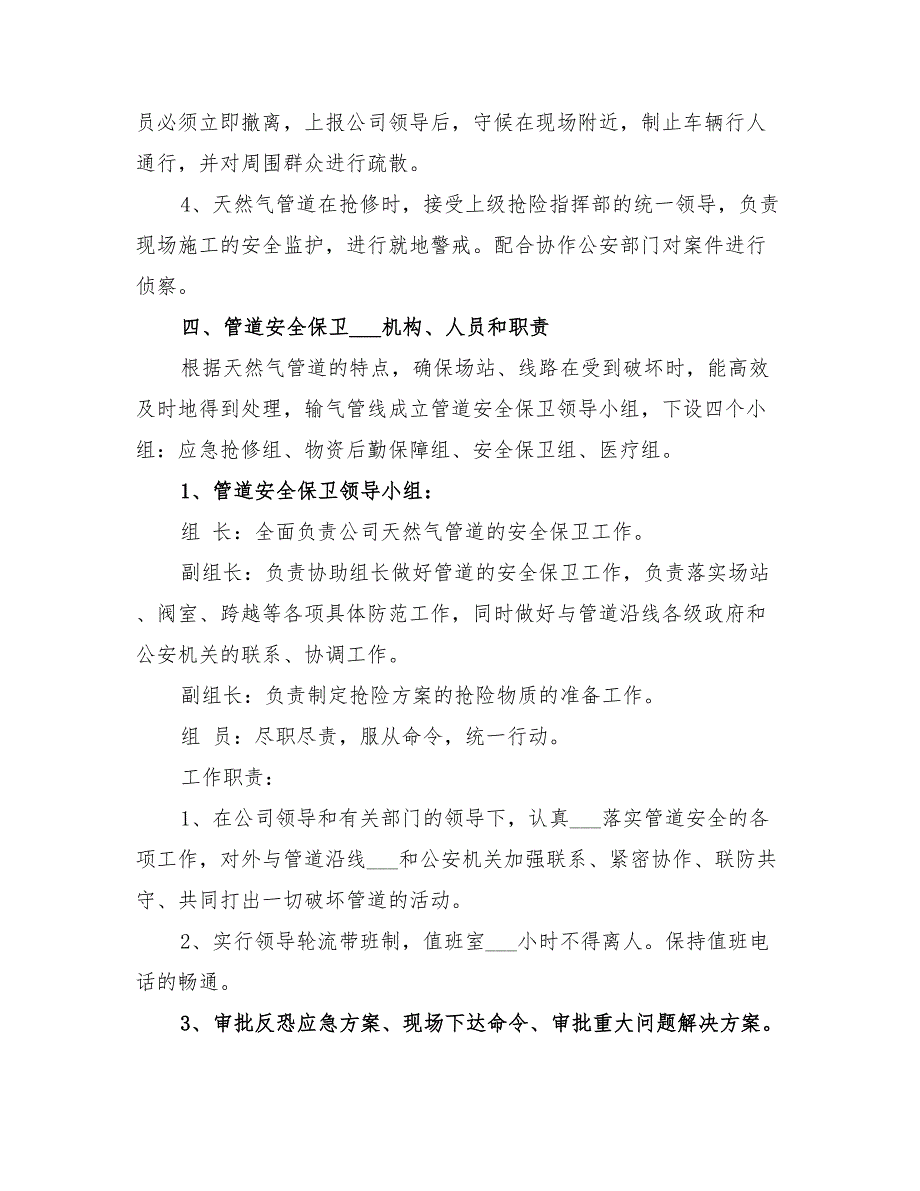 员必须立即撤离，上报公司领导后，守候在现场附近，制止车辆行人
通行，并对周围群众进行疏散。
4、天然气管道在抢修时，接受上级抢险指挥部的统一领导，负责
现场施工的安全监护，进行就地警戒。配合协作公安部门对案件进行
侦察。
四、管道安全保卫___机构、人员和职责
根据天然气管道的特点，确保场站、线路在受到破坏时，能高效
及时地得到处理，输气管线成立管道安全保卫领导小组，下设四个小
组：应急抢修组、物资后勤保障组、安全保卫组、医疗组。
1、管道安全保卫领导小组：
组 长：全面负责公司天然气管道的安全保卫工作。
副组长：负责协助组长做好管道的安全保卫工作，负责落实场站
、阀室、跨越等各项具体防范工作，同时做好与管道沿线各级政府和
公安机关的联系、协调工作。
副组长：负责制定抢险方案的抢险物质的准备工作。
组 员：尽职尽责，服从命令，统一行动。
工作职责：
1、在公司领导和有关部门的领导下，认真___落实管道安全的各
项工作，对外与管道沿线___和公安机关加强联系、紧密协作、联防共
守、共同打出一切破坏管道的活动。
2、实行领导轮流带班制，值班室___小时不得离人。保持值班电
话的畅通。
3、审批反恐应急方案、现场下达命令、审批重大问题解决方案。